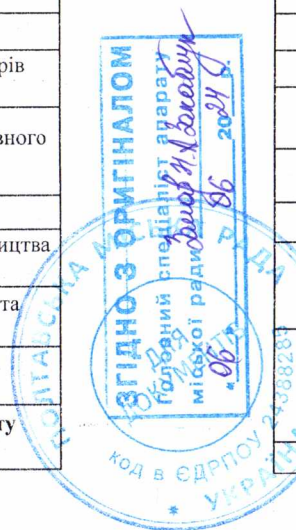 рів
вного
ицтва
та
ту
ЗГІДНО З ОРИГІНАЛОМ
Головний спеціаліст апарату
міської ради
"06" 06 2024 р.
ПОЛТАВСЬКА МІСЬКА РАДА
ДЛЯ
ДОКУМЕНТІВ
КОД В ЄДРПОУ 24388285
* УКРАЇНА